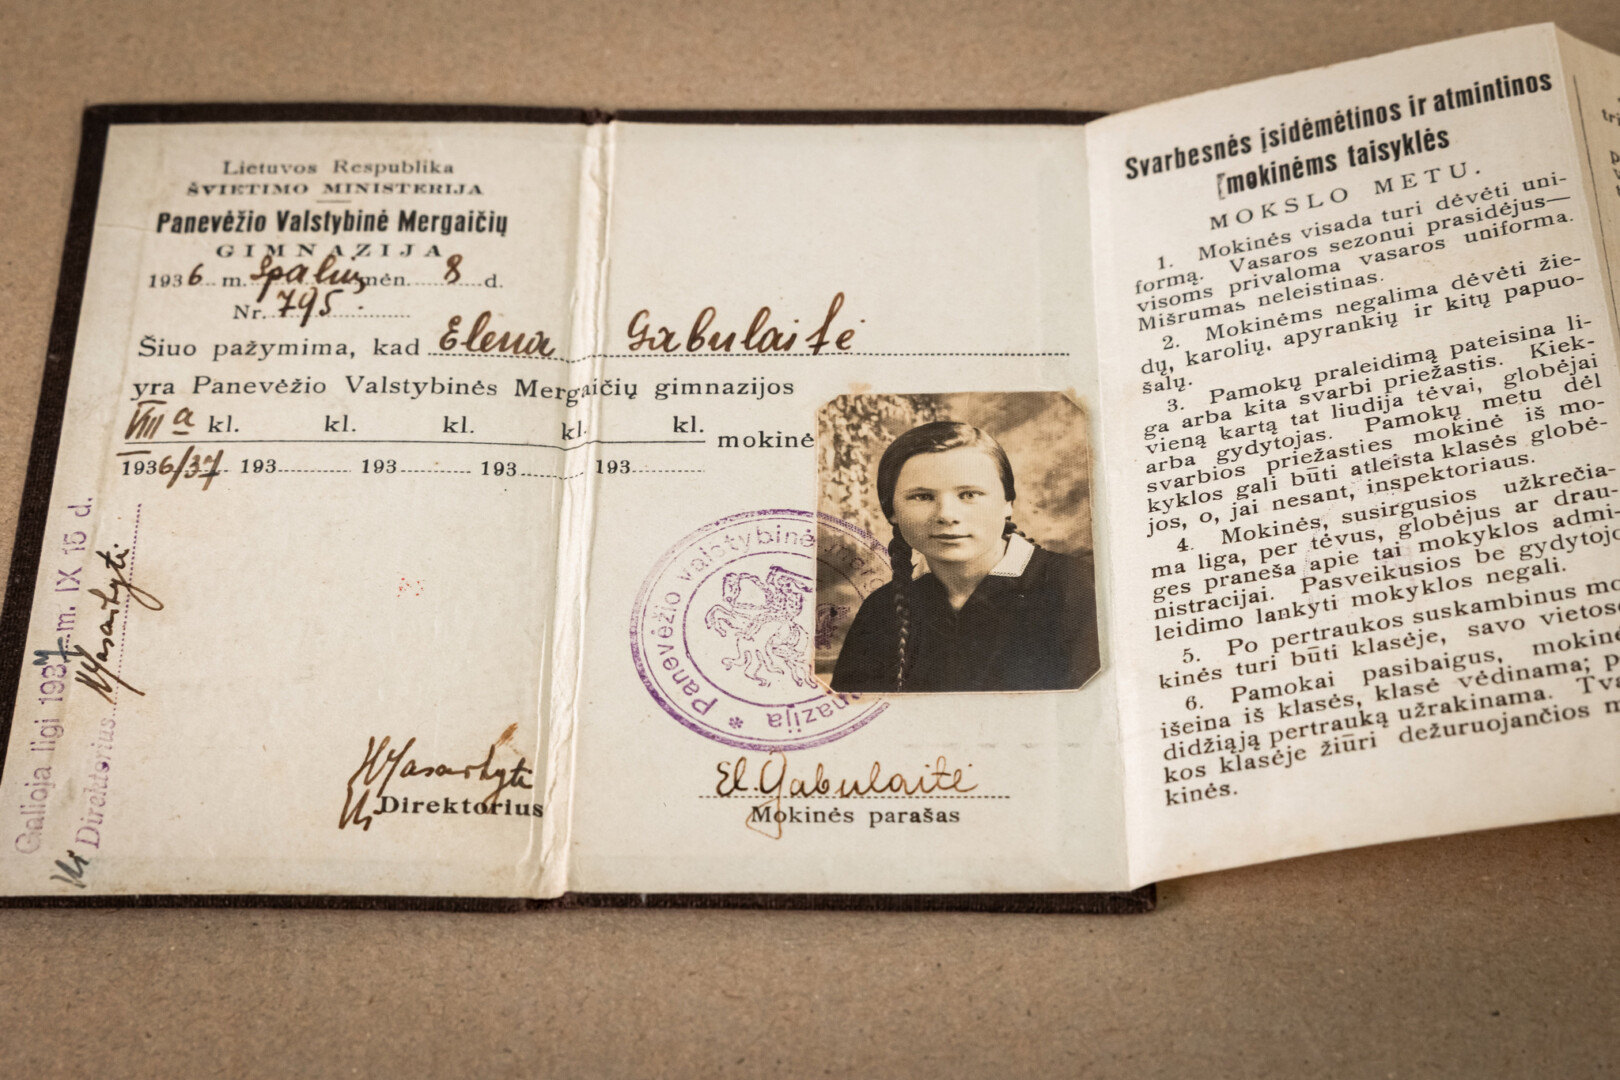 Lietuvos Respublika
ŠVIETIMO MINISTERIJA
Panevėžio Valstybinė Mergaičių
GIMNAZIJA
1936 m. Spalių mėn. 8 d.
Nr. 795.
Šiuo pažymima, kad Elena Gabulaitė
yra Panevėžio Valstybinės Mergaičių gimnazijos
VIII a kl. kl. kl. kl. kl. mokinė
1936/37 193 193 193 193
Galioja ligi 1937 m. IX 15 d.
Direktorius
Direktorius
Panevėžio valstybinė
nazija
El. Gabulaitė
Mokinės parašas
Svarbesnės įsidėmėtinos ir atmintinos
mokinėms taisyklės
MOKSLO METU.
1. Mokinės visada turi dėvėti uni-
formą. Vasaros sezonui prasidėjus—
visoms privaloma vasaros uniforma.
Mišrumas neleistinas.
2. Mokinėms negalima dėvėti žie-
dų, karolių, apyrankių ir kitų papuo-
šalų.
3. Pamokų praleidimą pateisina li-
ga arba kita svarbi priežastis. Kiek-
vieną kartą tat liudija tėvai, globėjai
arba gydytojas. Pamokų metu dėl
svarbios priežasties mokinė iš mo-
kyklos gali būti atleista klasės globė-
jos, o, jai nesant, inspektoriaus.
4. Mokinės, susirgusios užkrečia-
ma liga, per tėvus, globėjus ar drau-
ges praneša apie tai mokyklos admi-
nistracijai. Pasveikusios be gydytojo
leidimo lankyti mokyklos negali.
5. Po pertraukos suskambinus mo
kinės turi būti klasėje, savo vietose
6. Pamokai pasibaigus, mokinė
išeina iš klasės, klasė vėdinama; p
didžiąją pertrauką užrakinama. Tva
kos klasėje žiūri dežuruojančios m
kinės.